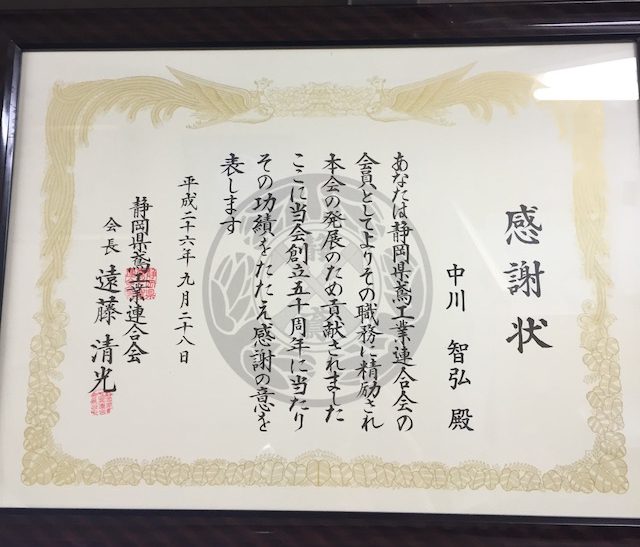 感謝状
中川 智弘 殿
あなたは静岡県鳶工業連合会の
会員としてよりその職務に精励され
本会の発展のため貢献されました
ここに当会創立五十周年に当たり
その功績をたたえ感謝の意を
表します
平成二十六年 九月二十八日
静岡県鳶工業連合会
会長 遠藤清光